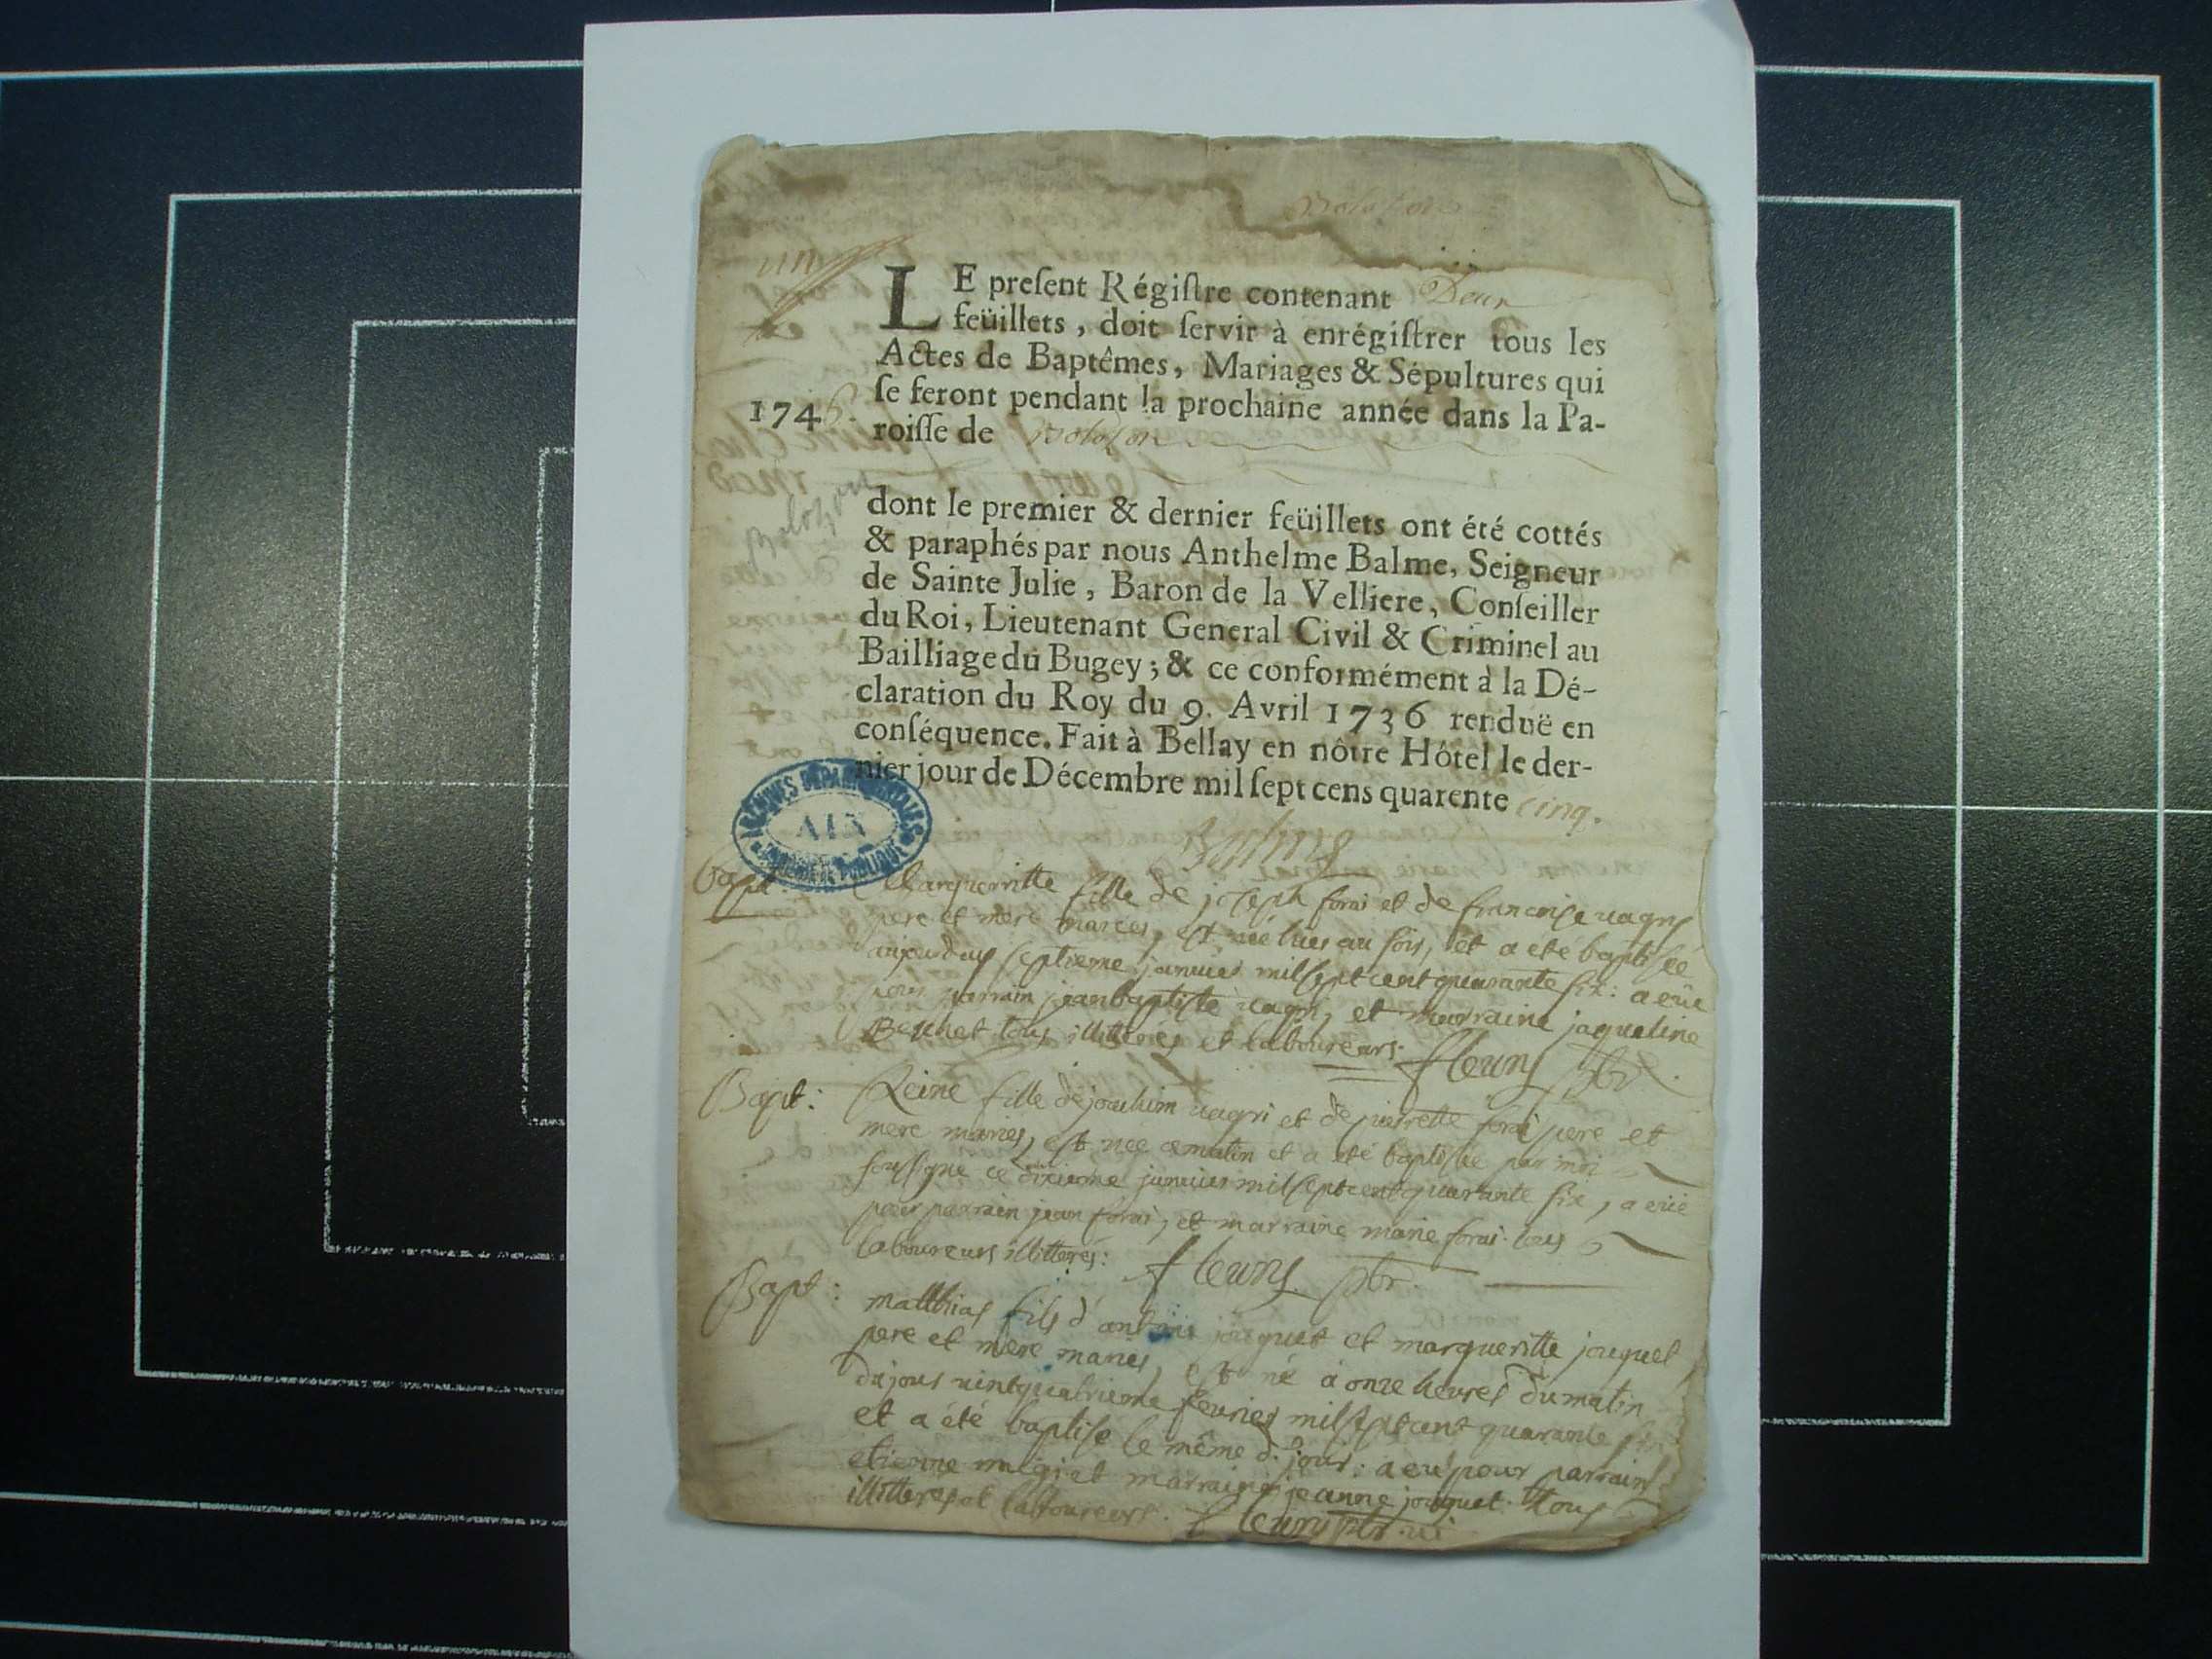 un
LE preſent Régiſtre contenant Deux
feüillets, doit ſervir à enrégiſtrer tous les
Actes de Baptêmes, Mariages & Sépultures qui
ſe feront pendant la prochaine année dans la Pa-
1746.
roiſſe de
dont le premier & dernier feüillets ont été cottés
& paraphés par nous Anthelme Balme, Seigneur
de Sainte Julie, Baron de la Velliere, Conſeiller
du Roi, Lieutenant General Civil & Criminel au
Bailliage du Bugey; & ce conformément à la Dé-
claration du Roy du 9. Avril 1736 renduë en
conſéquence. Fait à Bellay en nôtre Hôtel le der-
nier jour de Décembre mil ſept cens quarente cinq.
ARCHIVES DÉPARTEMENTALES
AIN
Balme
Bapt: Marguerritte fille de joseph forai et de francoise
pere et mere mariés, est née hier au soir, et a eté baptisée
aujourduy septieme janvier mil sept cent quarante six: a eüe
pour parrain jean baptiste et marraine jaqueline
tous illitterés et laboureurs. fleury ptr.
Bapt: Reine fille de joachim et de pierrette forai pere et
mere mariés, est née ce matin et a eté baptisée par moi
soussigné ce dixieme janvier mil sept cent quarante six, a eüe
pour parrain jean forai, et marraine marie forai. tous
laboureurs illitterés: fleury ptr.
Bapt: matthias fils d'antoine jouguet et margueritte jouguet
pere et mere mariés, est né à onze heures du matin
du jour vint quatrieme fevrier mil sept cent quarante six
et a été baptisé le même d. jour: a eu pour parrain
etienne et marraine jeanne jouguet. tous
illitterés et laboureurs. fleury ptr.